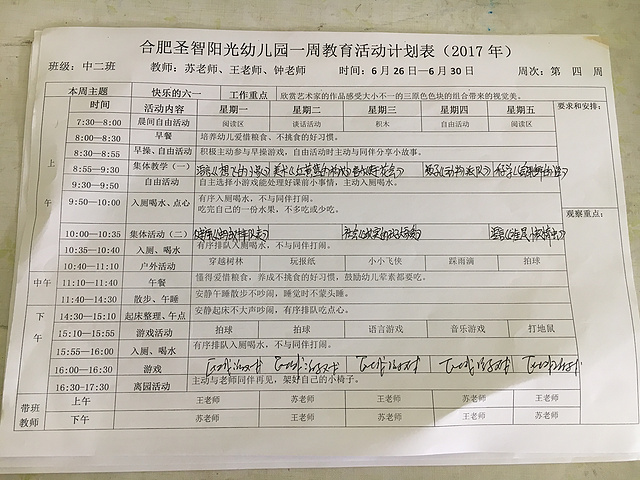 合肥圣智阳光幼儿园一周教育活动计划表（2017 年）
班级：中二班 教师：苏老师、王老师、钟老师 时间：6 月 26 日—6 月 30 日 周次：第 四 周
本周主题 快乐的六一 工作重点 欣赏艺术家的作品感受大小不一的三原色色块的组合带来的视觉美。
时间 活动内容 星期一 星期二 星期三 星期四 星期五 要求和安排：
7:30—8:00 晨间自由活动 阅读区 谈话活动 积木 自由活动 阅读区
上午
8:00—8:30 早餐 培养幼儿爱惜粮食、不挑食的好习惯。
8:30—8:55 早操、自由活动 积极主动参与早操游戏，自由活动时主动与同伴分享小故事。
8:55—9:30 集体教学（一）
9:30—9:50 自由活动 自主选择小游戏能处理好课前小事情，主动入厕喝水。
9:50—10:00 入厕喝水、点心 有序入厕喝水，不与同伴打闹。
吃完自己的一份水果，不多吃或少吃。
观察重点：
10:00—10:35 集体活动（二）
10:35—10:40 入厕、喝水 有序排队入厕喝水，不与同伴打闹。
10:40—11:10 户外活动 穿越树林 玩报纸 小小飞侠 踩雨滴 拍球
中午
11:10—11:40 午餐 懂得爱惜粮食，养成不挑食的好习惯，鼓励幼儿荤素都要吃。
11:40—14:30 散步、午睡 安静午睡散步不吵闹，睡觉时不蒙头睡。
下午
14:30—15:10 起床整理、午点 安静起床不大声吵闹，有序排队吃点心。
15:10—15:55 游戏活动 拍球 拍球 语言游戏 音乐游戏 打地鼠
15:55—16:00 入厕、喝水 有序排队入厕喝水，不与同伴打闹。
16:00—16:30 游戏 区域游戏 区域游戏 区域游戏 区域游戏 区域游戏
16:30-17:30 离园活动 主动与老师同伴再见，架好自己的小椅子。
带班教师 上午 王老师 苏老师 王老师 苏老师 王老师
下午 苏老师 王老师 苏老师 王老师 苏老师